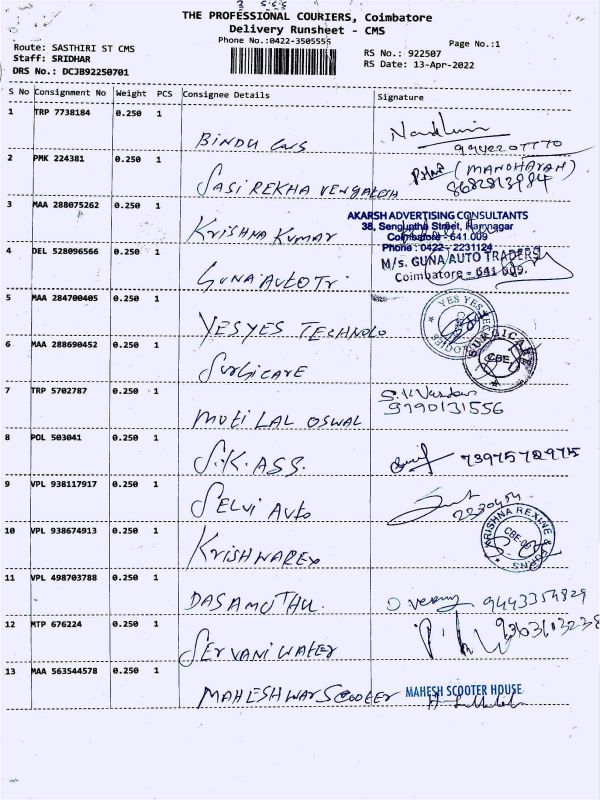 THE PROFESSIONAL COURIERS, Coimbatore
Delivery Runsheet - CMS
Phone No.:0422-3505555
Page No.:1
Route: SASTHIRI ST CMS
Staff: SRIDHAR
DRS No.: DCJB92250701
RS No.: 922507
RS Date: 13-Apr-2022
S No Consignment No Weight PCS Consignee Details Signature
1 TRP 7738184 0.250 1
BINDU
9942207770
2 PMK 224381 0.250 1
SASI REKHA VENGATESH
(MANOHARAN)
8682813984
3 MAA 288075262 0.250 1
KRISHNA KUMAR
AKARSH ADVERTISING CONSULTANTS
38, Senguptha Street, Ramnagar
Coimbatore - 641 009
Phone : 0422 - 2231124
4 DEL 528096566 0.250 1
GUNA AUTO Tr.
M/s. GUNA AUTO TRADERS
Coimbatore - 641 009.
5 MAA 284700405 0.250 1
YES YES TECHNOLO
YES YES
6 MAA 288690452 0.250 1
SURGICARE
SURGICARE
CBE
7 TRP 5702787 0.250 1
MOTI LAL OSWAL
9790131556
8 POL 503041 0.250 1
S.K. ASS.
9 VPL 938117917 0.250 1
SELVI AUTO
2230454
10 VPL 938674913 0.250 1
KRISHNAREX
KRISHNA REXINE &
11 VPL 498703788 0.250 1
DASAMUTHU.
12 MTP 676224 0.250 1
SERVANI WATER
13 MAA 563544578 0.250 1
MAHESHWAR SCOOTER
MAHESH SCOOTER HOUSE